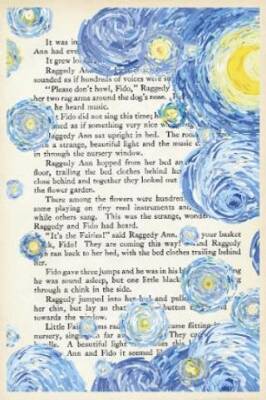 It was in
Ann had ever
It grew lo
Raggedy Ann
sounded as if hundreds of voices were
"Please don't howl, Fido," Raggedy
her two rag arms around the dog's nose.
he heard music.
t Fido did not sing this time;
ed as if something very nice was
Raggedy Ann sat upright in bed. The
with a strange, beautiful light and the music
in through the nursery window.
Raggedy Ann hopped from her bed an
floor, trailing the bed clothes behind he
close behind and together they looked out
the flower garden.
There among the flowers were hundred
some playing on tiny reed instruments and
while others sang. This was the strange, wonder
Raggedy and Fido had heard.
"It's the Fairies!" said Raggedy Ann. your basket
ck, Fido! They are coming this way! nd Raggedy
ran back to her bed, with the bed clothes trailing behind
her.
Fido gave three jumps and he was in his
he was sound asleep, but one little black
through a chink in the side.
Raggedy jumped into her bed and pulle
her chin, but lay so that button
towards the window.
Little Fai ms ra flitting
nursery, sing far a
dle. A beautiful light this
Ann and Fido it seemed li